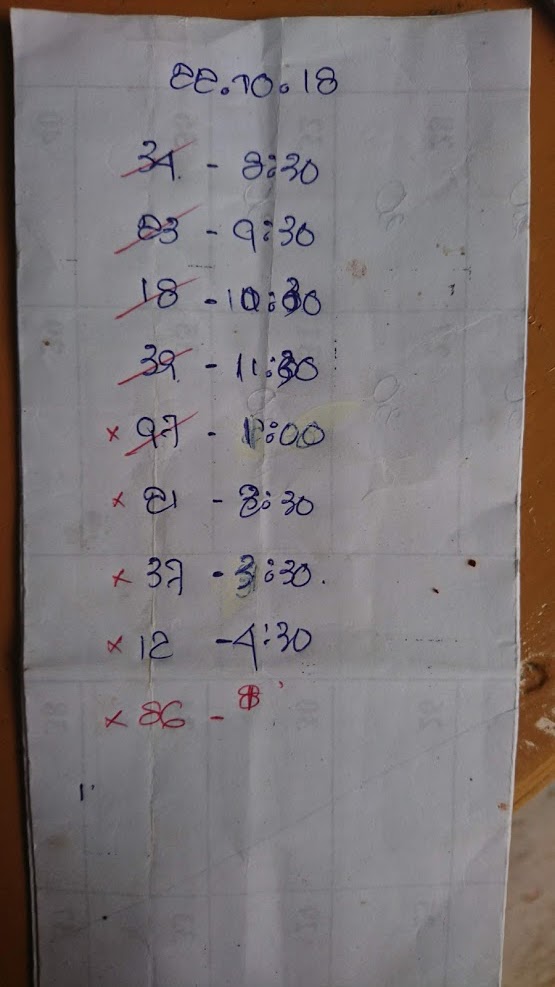 22.10.18
34 - 8:30
23 - 9:30
18 - 10:30
39 - 11:30
× 97 - 1:00
× 21 - 2:30
× 37 - 3:30.
× 12 - 4:30
× 26 -